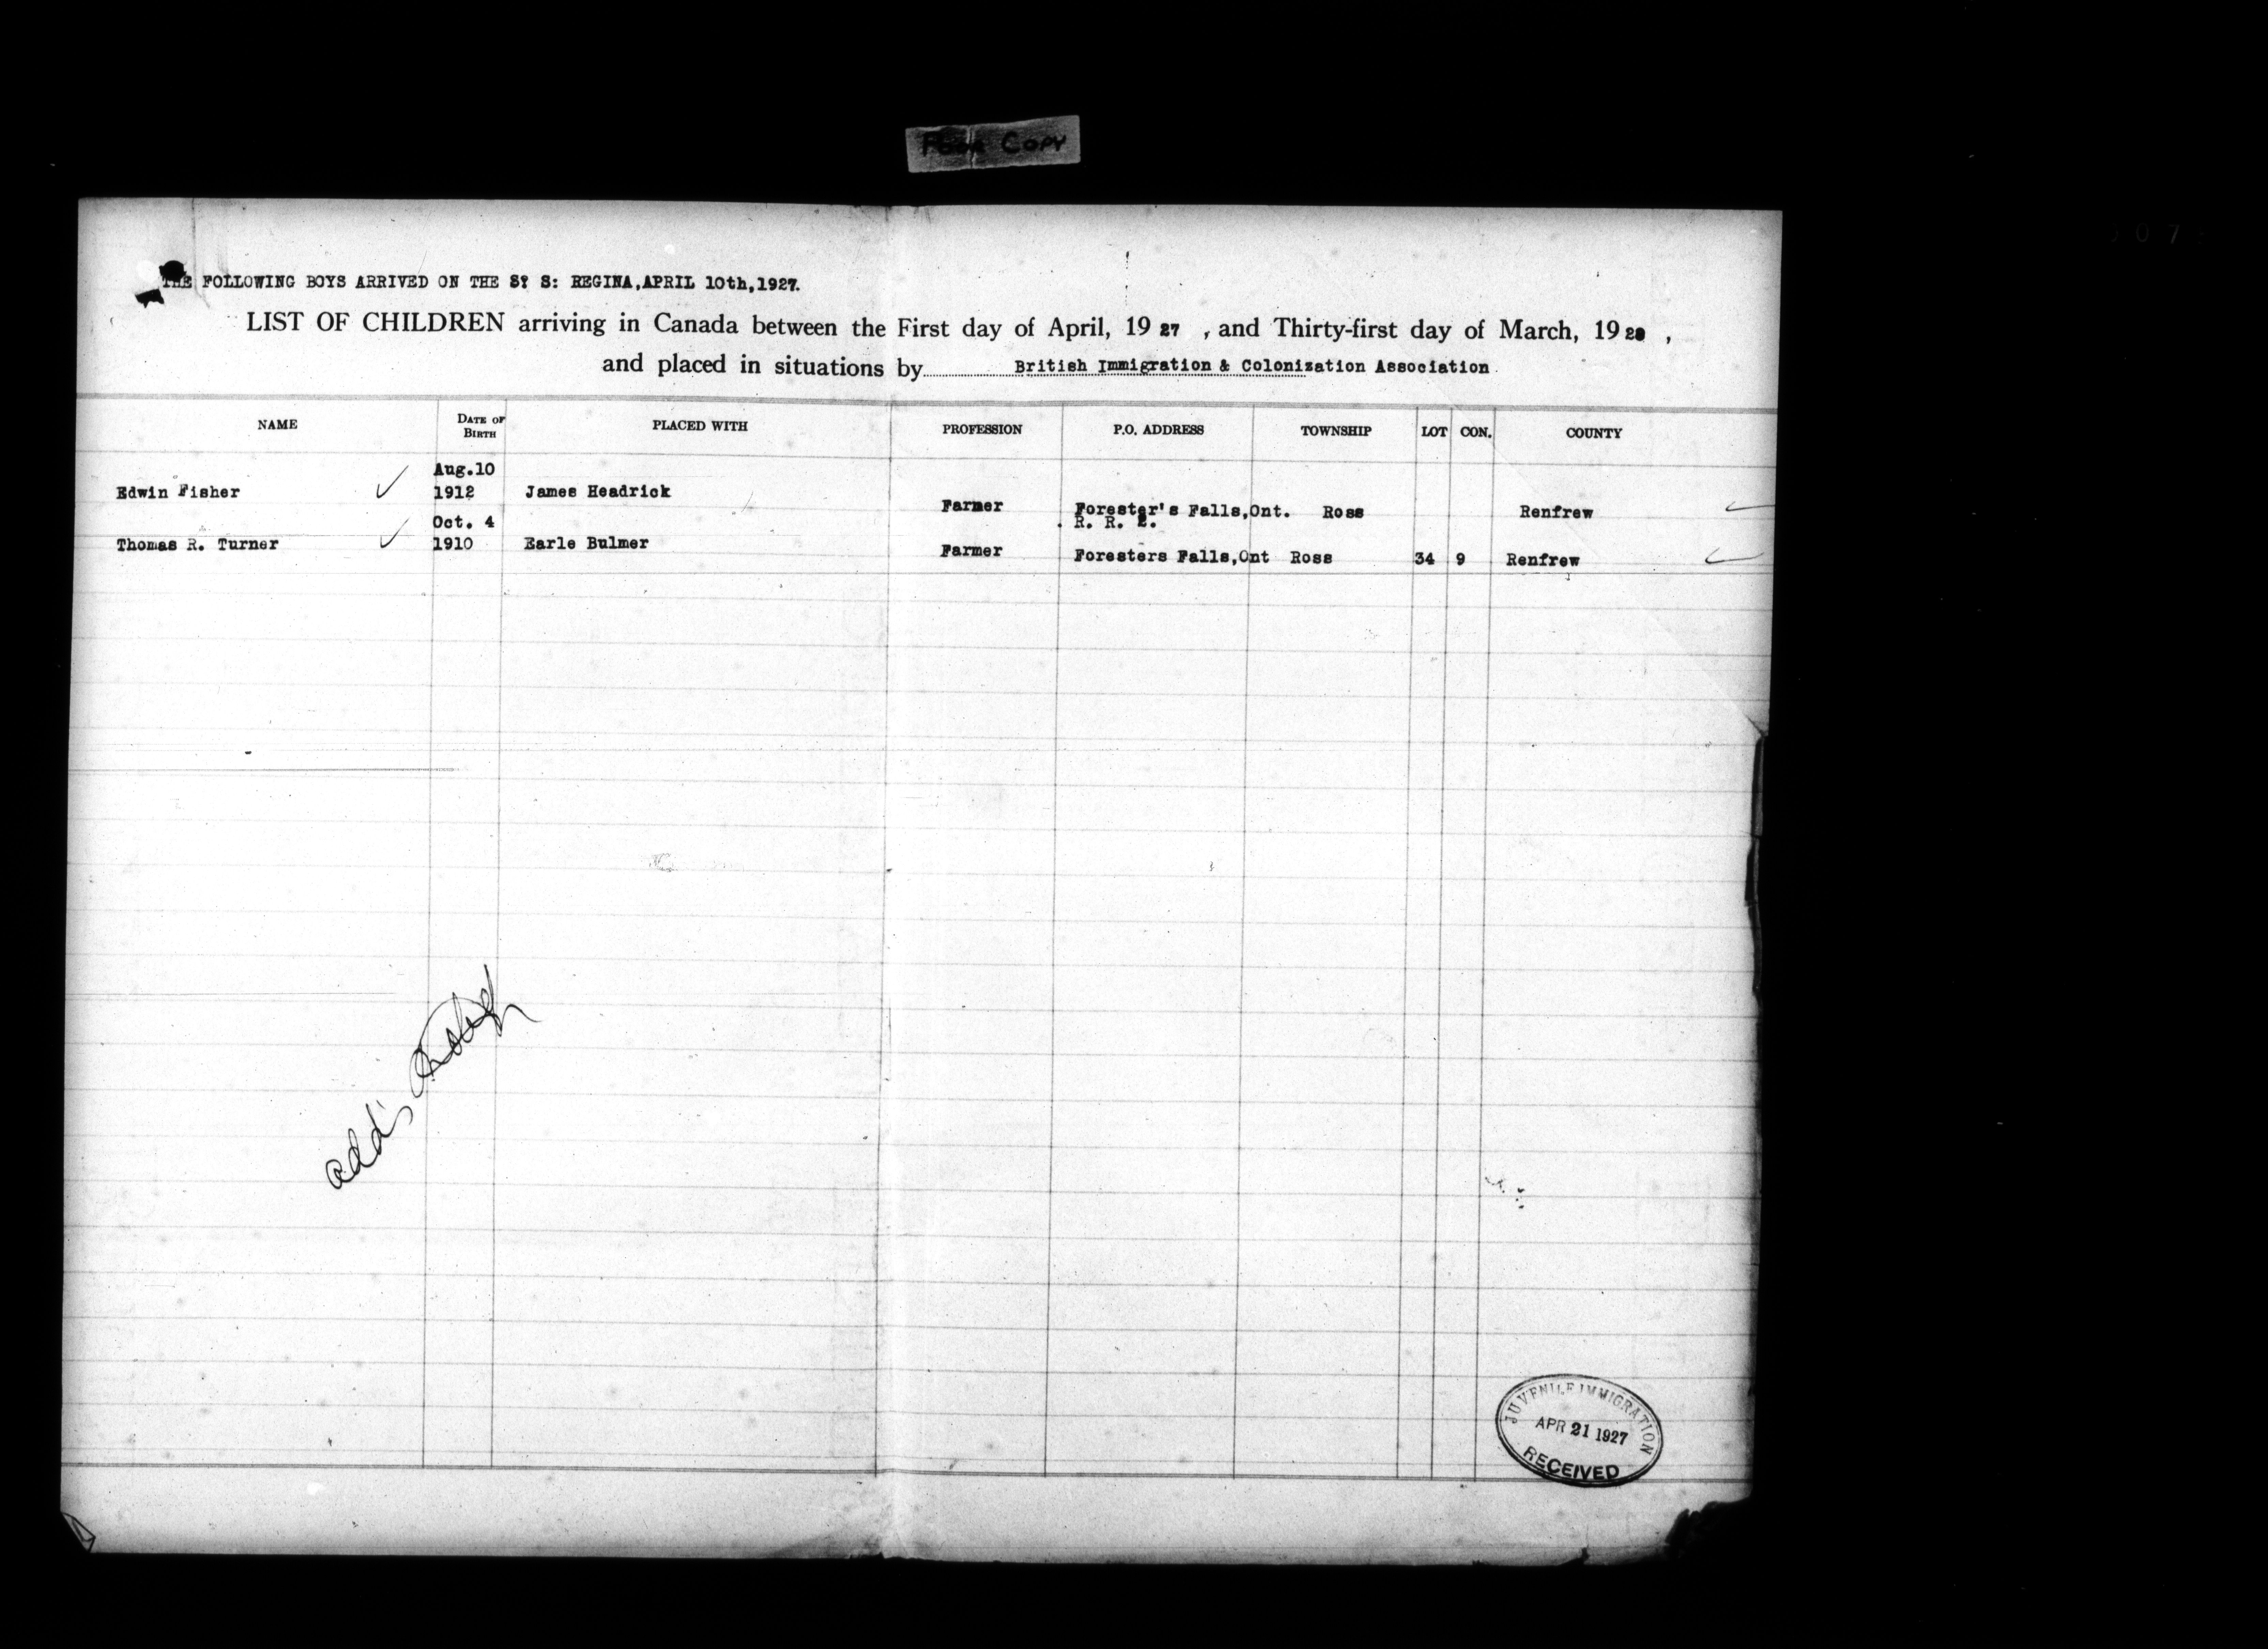 Poor Copy
THE FOLLOWING BOYS ARRIVED ON THE S. S: REGINA,APRIL 10th,1927.
LIST OF CHILDREN arriving in Canada between the First day of April, 1927 , and Thirty-first day of March, 1928 ,
and placed in situations by British Immigration & Colonization Association
NAME DATE OF BIRTH PLACED WITH PROFESSION P.O. ADDRESS TOWNSHIP LOT CON. COUNTY
Aug.10
Edwin Fisher ✓ 1912 James Headrick Farmer Forester's Falls,Ont. Ross Renfrew ✓
Oct. 4 R. R. 2.
Thomas R. Turner ✓ 1910 Earle Bulmer Farmer Foresters Falls,Ont Ross 34 9 Renfrew ✓
add's
JUVENILE IMMIGRATION
APR 21 1927
RECEIVED